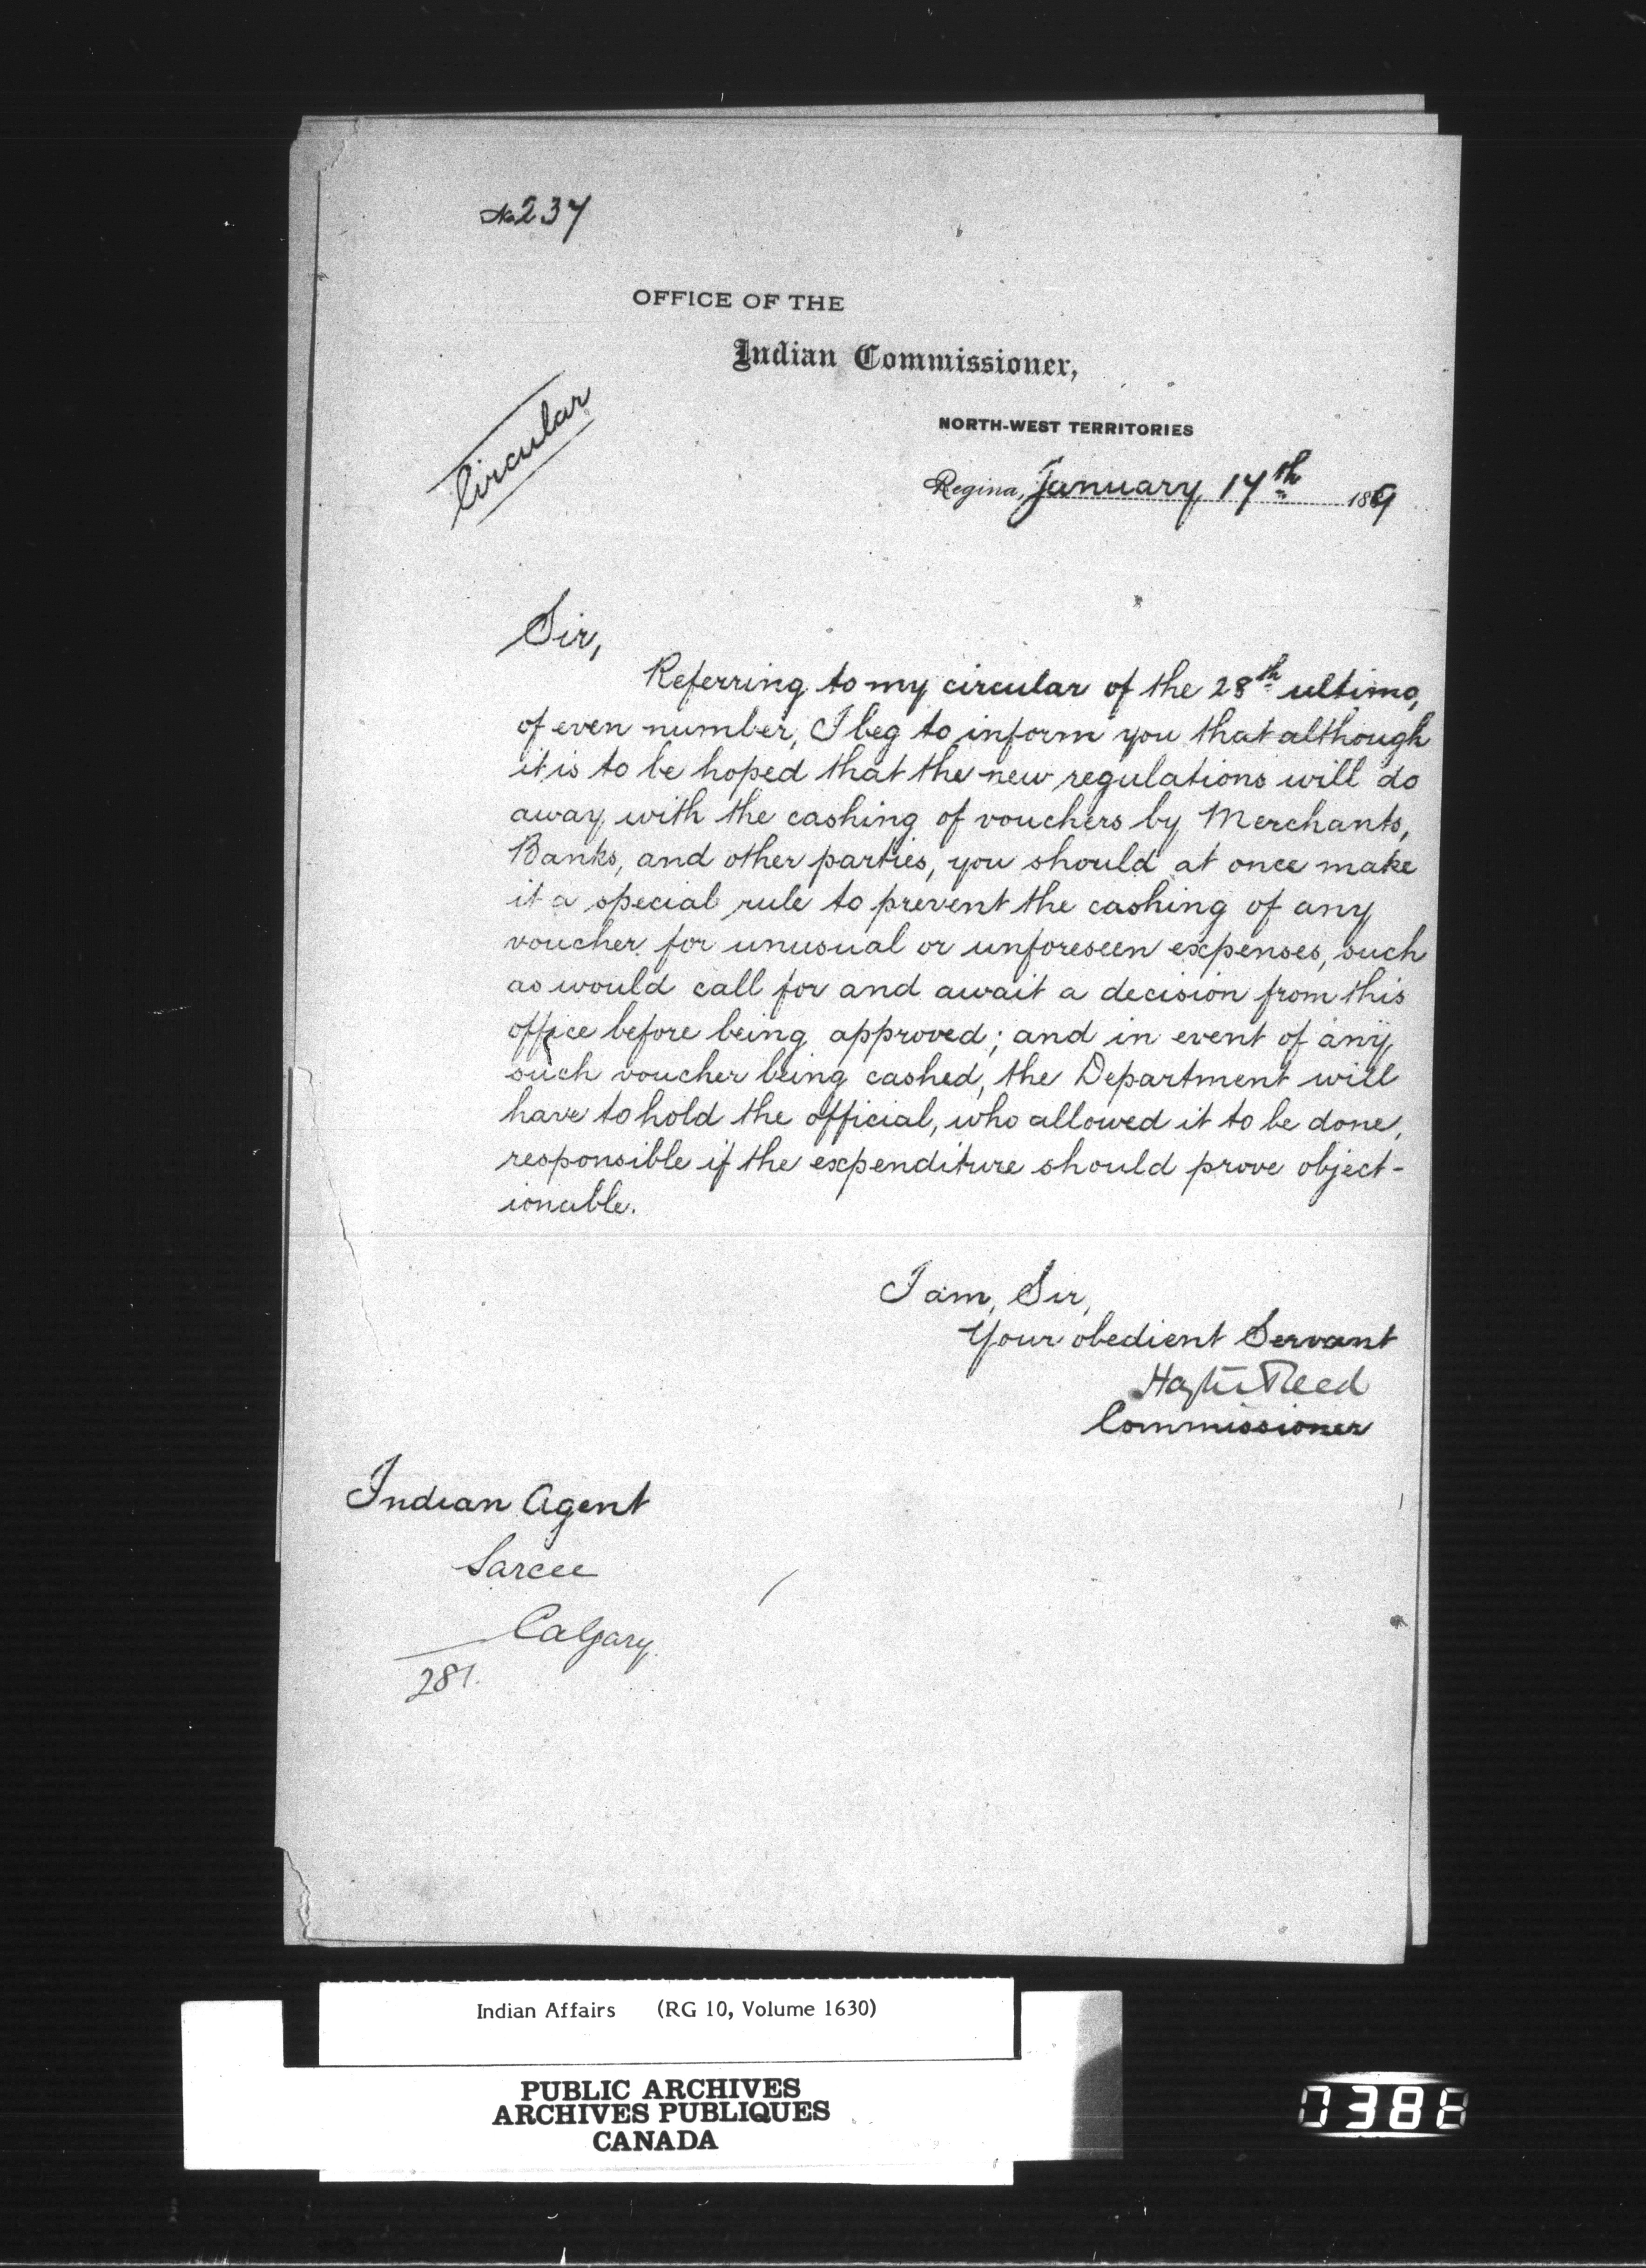 No 237
OFFICE OF THE
Indian Commissioner,
NORTH-WEST TERRITORIES
Circular
Regina, January 17th 1889
Sir,
Referring to my circular of the 28th ultimo,
of even number, I beg to inform you that although
it is to be hoped that the new regulations will do
away with the cashing of vouchers by Merchants,
Banks, and other parties, you should at once make
it a special rule to prevent the cashing of any
voucher for unusual or unforeseen expenses, such
as would call for and await a decision from this
office before being approved; and in event of any
such voucher being cashed, the Department will
have to hold the official, who allowed it to be done,
responsible if the expenditure should prove object-
ionable.
I am, Sir,
Your obedient Servant
Hayter Reed
Commissioner
Indian Agent
Sarcee
Calgary
287.
Indian Affairs (RG 10, Volume 1630)
PUBLIC ARCHIVES
ARCHIVES PUBLIQUES
CANADA